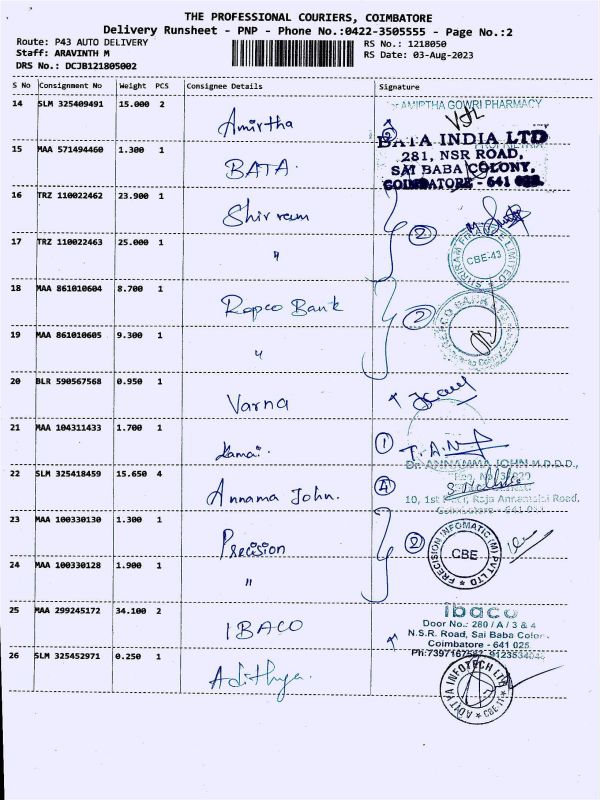 THE PROFESSIONAL COURIERS, COIMBATORE
Delivery Runsheet - PNP - Phone No.:0422-3505555 - Page No.:2
Route: P43 AUTO DELIVERY
Staff: ARAVINTH M
DRS No.: DCJB121805002
RS No.: 1218050
RS Date: 03-Aug-2023
S No Consignment No Weight PCS Consignee Details Signature
14 SLM 325409491 15.000 2 Amirtha
AMIRTHA GOWRI PHARMACY
15 MAA 571494460 1.300 1 BATA.
BATA INDIA LTD
281, NSR ROAD,
SAI BABA COLONY,
COIMBATORE - 641 025.
16 TRZ 110022462 23.900 1 Shirram
2
17 TRZ 110022463 25.000 1 "
CBE-43
18 MAA 861010604 8.700 1 Repco Bank
2
19 MAA 861010605 9.300 1 "
20 BLR 590567568 0.950 1 Varna
21 MAA 104311433 1.700 1 Kamai.
1
22 SLM 325418459 15.650 4 Annama John.
4
Dr. ANNAMMA JOHN M.D.D.D.,
10, 1st Floor, Raja Annamalai Road,
Coimbatore - 641 011
23 MAA 100330130 1.300 1 Precision
2
PRECISION INFOMATIC (M) PVT LTD
CBE
24 MAA 100330128 1.900 1 "
25 MAA 299245172 34.100 2 IBACO
ibaco
Door No.: 280 / A / 3 & 4
N.S.R. Road, Sai Baba Colony
Coimbatore - 641 025
26 SLM 325452971 0.250 1 Adithya.
ADITYA INFOTECH LTD
CBE-11